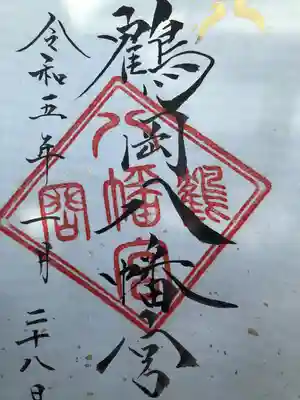 鶴岡八幡宮
令和五年一月二十八日
八幡宮
鶴
岡